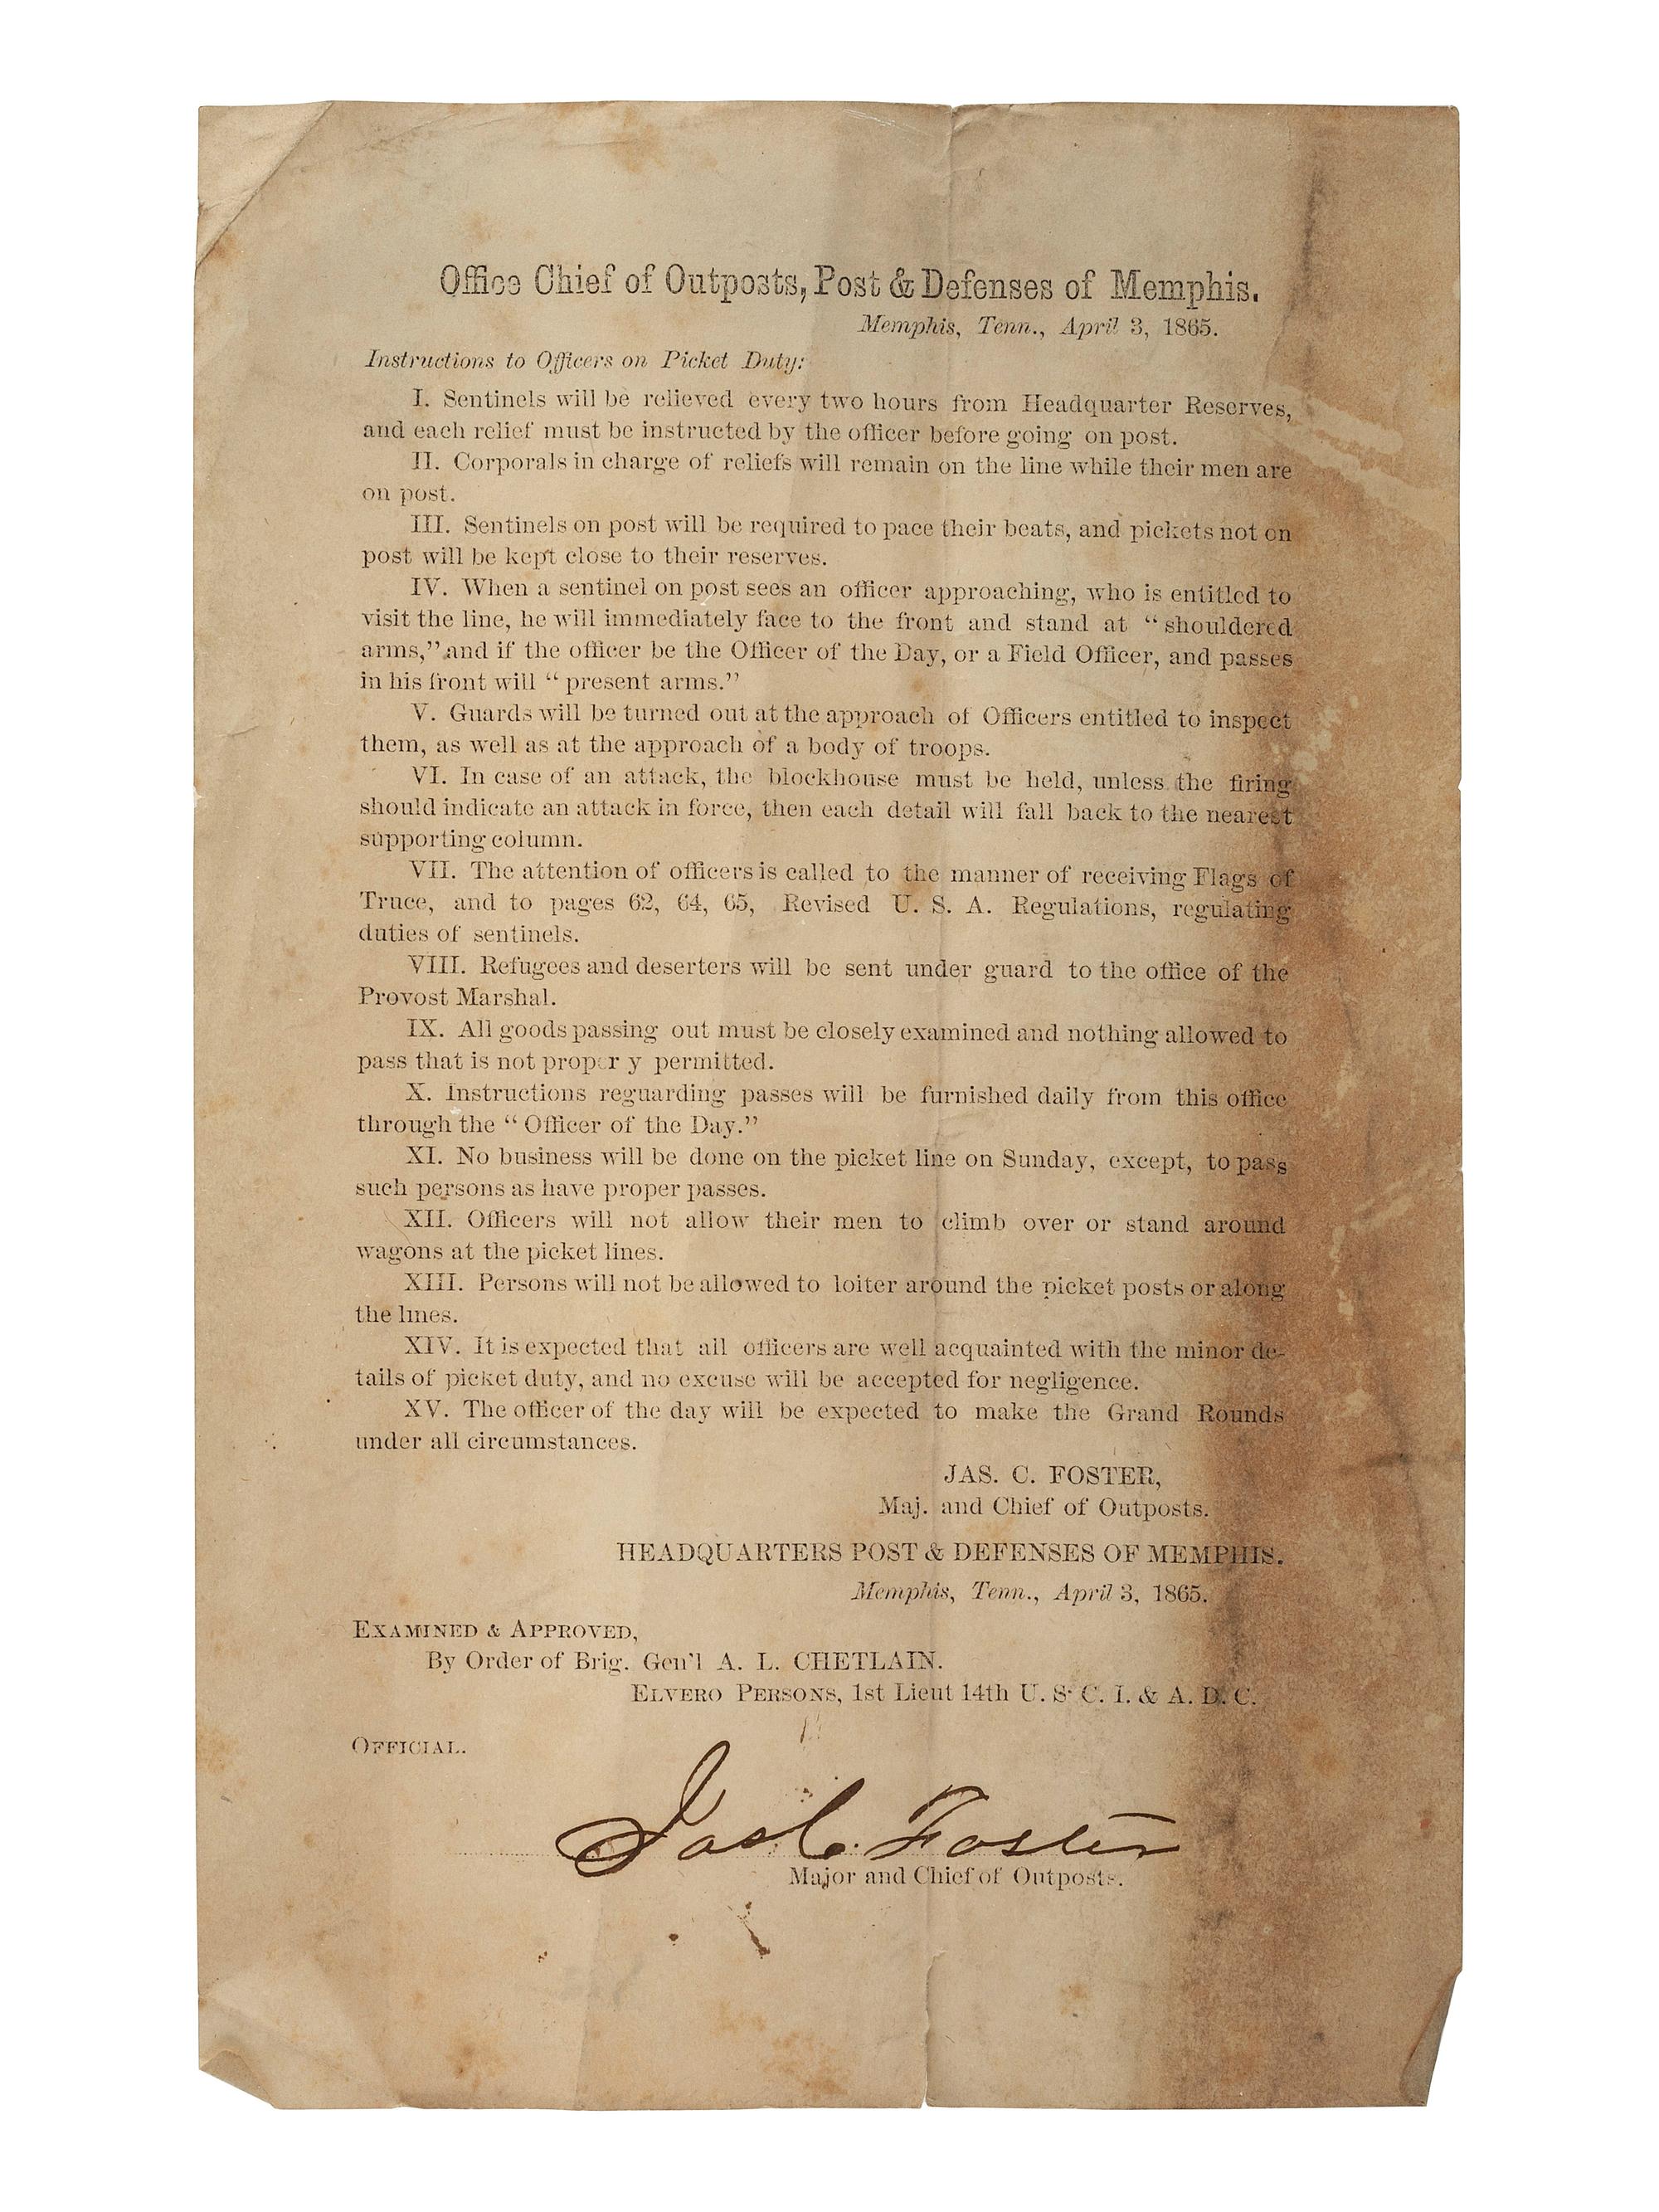 Office Chief of Outposts, Post & Defenses of Memphis.
Memphis, Tenn., April 3, 1865.
Instructions to Officers on Picket Duty:
I. Sentinels will be relieved every two hours from Headquarter Reserves,
and each relief must be instructed by the officer before going on post.
II. Corporals in charge of reliefs will remain on the line while their men are
on post.
III. Sentinels on post will be required to pace their beats, and pickets not on
post will be kept close to their reserves.
IV. When a sentinel on post sees an officer approaching, who is entitled to
visit the line, he will immediately face to the front and stand at "shouldered
arms," and if the officer be the Officer of the Day, or a Field Officer, and passes
in his front will "present arms."
V. Guards will be turned out at the approach of Officers entitled to inspect
them, as well as at the approach of a body of troops.
VI. In case of an attack, the blockhouse must be held, unless the firing
should indicate an attack in force, then each detail will fall back to the nearest
supporting column.
VII. The attention of officers is called to the manner of receiving Flags of
Truce, and to pages 62, 64, 65, Revised U. S. A. Regulations, regulating
duties of sentinels.
VIII. Refugees and deserters will be sent under guard to the office of the
Provost Marshal.
IX. All goods passing out must be closely examined and nothing allowed to
pass that is not proper y permitted.
X. Instructions reguarding passes will be furnished daily from this office
through the "Officer of the Day."
XI. No business will be done on the picket line on Sunday, except, to pass
such persons as have proper passes.
XII. Officers will not allow their men to climb over or stand around
wagons at the picket lines.
XIII. Persons will not be allowed to loiter around the picket posts or along
the lines.
XIV. It is expected that all officers are well acquainted with the minor de-
tails of picket duty, and no excuse will be accepted for negligence.
XV. The officer of the day will be expected to make the Grand Rounds
under all circumstances.
JAS. C. FOSTER,
Maj. and Chief of Outposts.
HEADQUARTERS POST & DEFENSES OF MEMPHIS.
Memphis, Tenn., April 3, 1865.
EXAMINED & APPROVED,
By Order of Brig. Gen'l A. L. CHETLAIN.
ELVERO PERSONS, 1st Lieut 14th U. S. C. I. & A. D. C.
OFFICIAL.
Jas C. Foster
Major and Chief of Outposts.